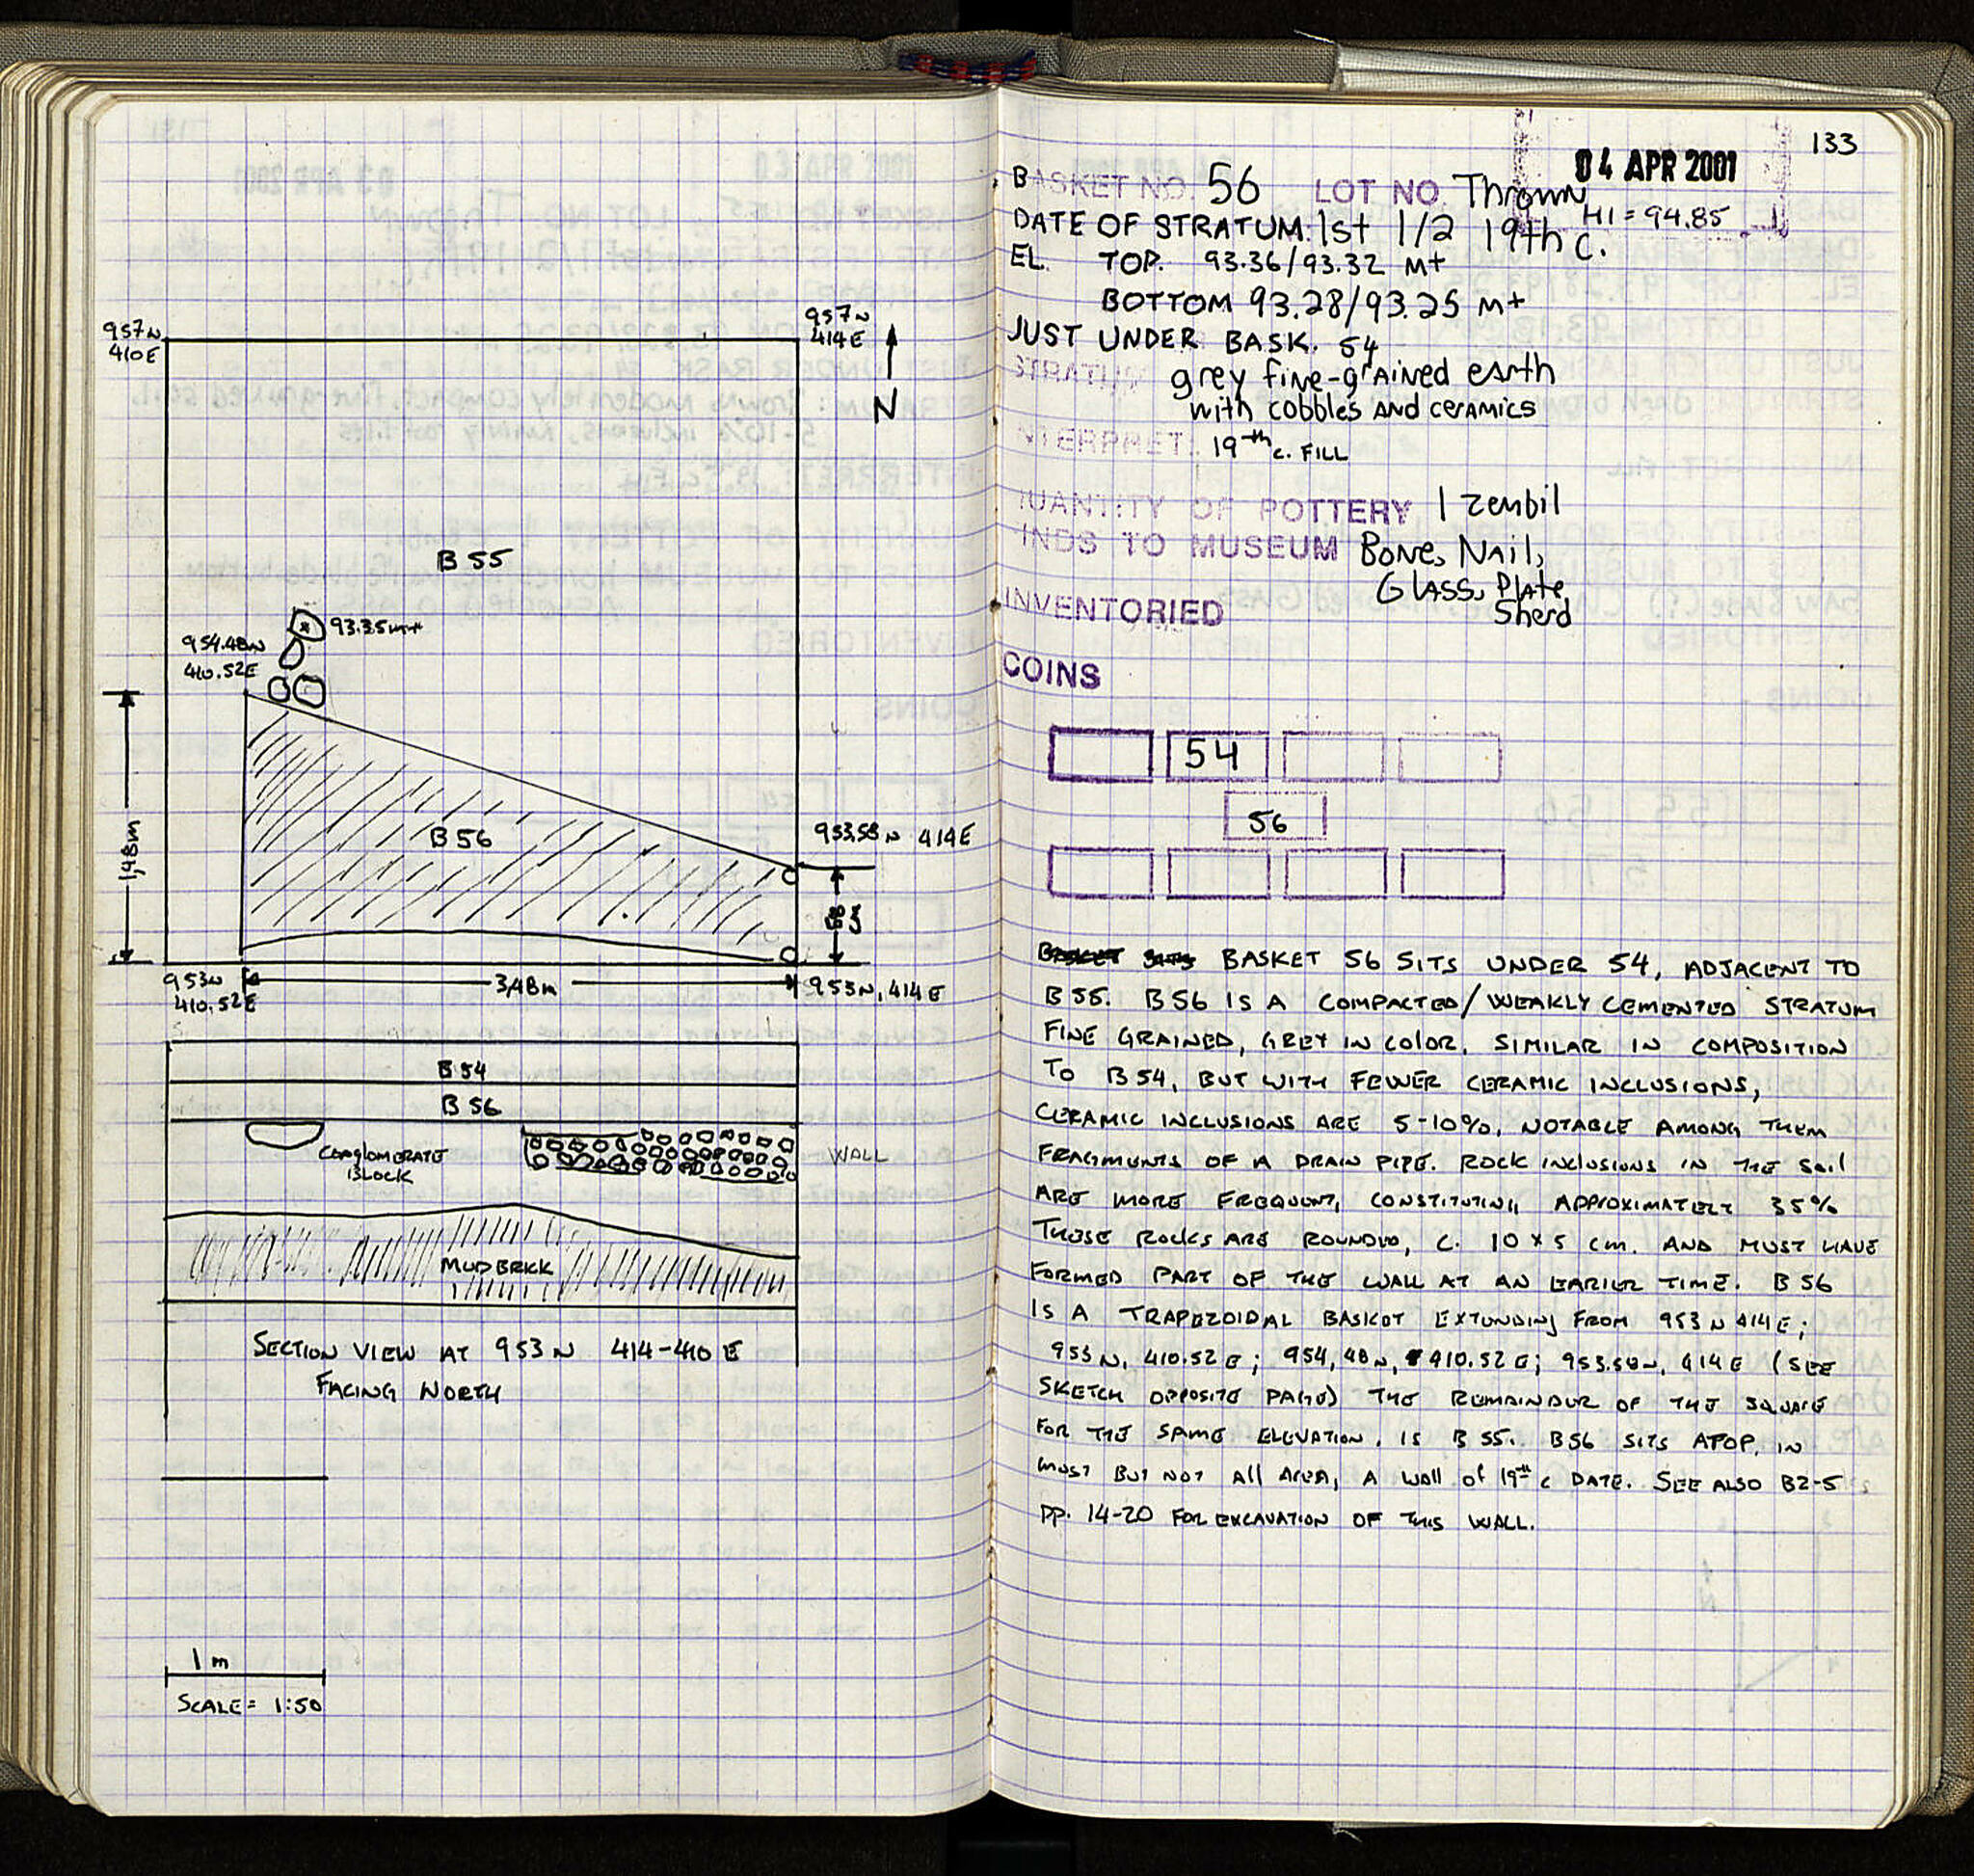 957N
410E
957N
414E
N
B 55
93.35m+
954.48N
410.52E
B 56
1,48m
953.58N 414E
58
953N
410.52E
3,48m
953N, 414E
B 54
B 56
CONGLOMERATE
BLOCK
WALL
MUDBRICK
SECTION VIEW AT 953N 414-410 E
FACING NORTH
1 m
SCALE= 1:50
133
04 APR 2001
BASKET NO. 56 LOT NO Thrown
HI = 94.85
DATE OF STRATUM: 1st 1/2 19th c.
EL. TOP. 93.36/93.32 M+
BOTTOM 93.28/93.25 M+
JUST UNDER BASK. 54
STRATUM grey fine-grained earth
with cobbles AND ceramics
INTERPRET: 19th c. FILL
QUANTITY OF POTTERY 1 zembil
FINDS TO MUSEUM Bone, Nail,
GLASS, Plate,
Sherd
INVENTORIED
COINS
54
56
BASKET 56 SITS UNDER 54, ADJACENT TO
B 55. B56 IS A COMPACTED/WEAKLY CEMENTED STRATUM
FINE GRAINED, GREY IN COLOR. SIMILAR IN COMPOSITION
TO B 54, BUT WITH FEWER CERAMIC INCLUSIONS,
CERAMIC INCLUSIONS ARE 5-10%, NOTABLE AMONG THEM
FRAGMENTS OF A DRAIN PIPE. ROCK INCLUSIONS IN THE SOIL
ARE MORE FREQUENT, CONSTITUTING APPROXIMATELY 35%
THESE ROCKS ARE ROUNDED, C. 10 x 5 cm. AND MUST HAVE
FORMED PART OF THE WALL AT AN EARIER TIME. B 56
IS A TRAPEZOIDAL BASKET EXTENDING FROM 953 N 414 E;
953 N, 410.52 E; 954,48N, 410.52 E; 953.58N, 414 E (SEE
SKETCH OPPOSITE PAGE) THE REMAINDER OF THE SQUARE
FOR THE SAME ELEVATION, IS B 55. B56 SITS ATOP, IN
MOST BUT NOT ALL AREA, A WALL OF 19th c DATE. SEE ALSO B2-5
PP. 14-20 FOR EXCAVATION OF THIS WALL.